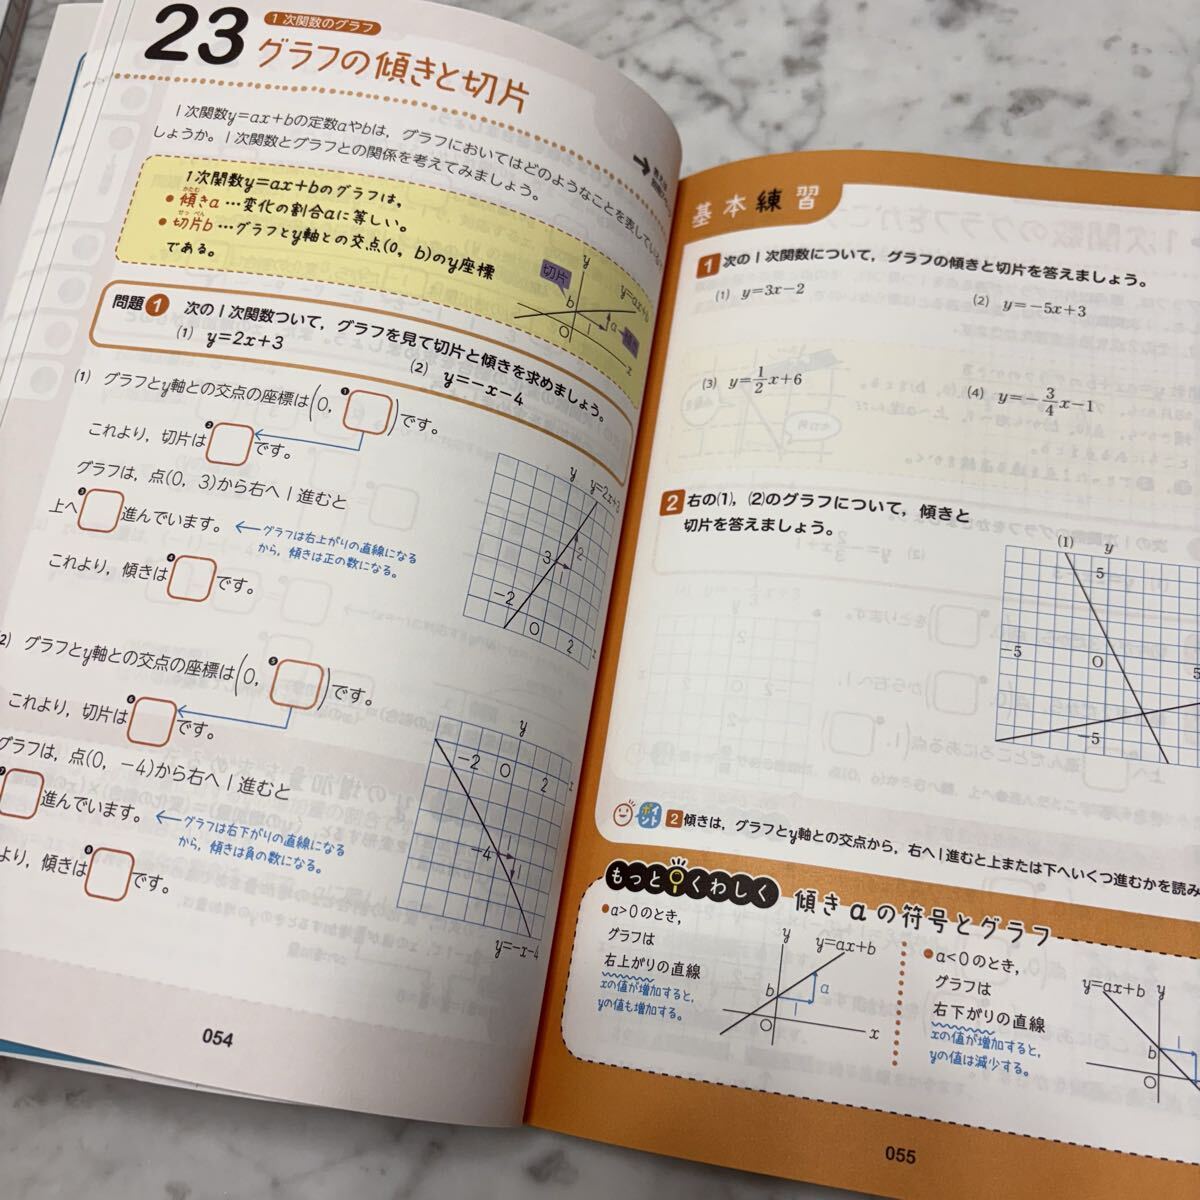 23
1次関数のグラフ
グラフの傾きと切片
1次関数y=ax+bの定数aやbは，グラフにおいてはどのようなことを表している
しょうか。1次関数とグラフとの関係を考えてみましょう。
1次関数y=ax+bのグラフは，
かたむ
• 傾きa…変化の割合aに等しい。
せっぺん
• 切片b…グラフとy軸との交点(0，b)のy座標
である。
切片
b
y
y=ax+b
a
1
O
x
問題1 次の1次関数ついて，グラフを見て切片と傾きを求めましょう。
(1) y=2x+3
(2) y=-x-4
(1) グラフとy軸との交点の座標は(0，❶□)です。
これより，切片は❷□です。
グラフは，点(0，3)から右へ1進むと
上へ❸□進んでいます。
←グラフは右上がりの直線になる
から，傾きは正の数になる。
これより，傾きは❹□です。
y
y=2x+3
3
2
1
-2
O
2
x
2) グラフとy軸との交点の座標は(0，❺□)です。
これより，切片は❻□です。
グラフは，点(0，-4)から右へ1進むと
□進んでいます。
←グラフは右下がりの直線になる
から，傾きは負の数になる。
より，傾きは❽□です。
y
-2
O
2
x
-4
1
1
y=-x-4
054
基本練習
1 次の1次関数について，グラフの傾きと切片を答えましょう。
(1) y=3x-2
(2) y=-5x+3
(3) y=1/2x+6
(4) y=-3/4x-1
2 右の(1)，(2)のグラフについて，傾きと
切片を答えましょう。
(1)
y
5
-5
O
5
-5
ポイント
2 傾きは，グラフとy軸との交点から，右へ1進むと上または下へいくつ進むかを読み
もっとくわしく
傾きaの符号とグラフ
• a>0のとき，
グラフは
右上がりの直線
xの値が増加すると，
yの値も増加する。
y
y=ax+b
b
a
1
O
x
• a<0のとき，
グラフは
右下がりの直線
xの値が増加すると，
yの値は減少する。
y=ax+b
y
b
1
O
055